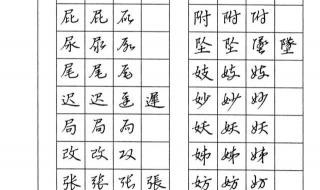 屁 屁 屁 附 附 附
尿 尿 尿 坠 坠 墜 墜
尾 尾 尾 妓 妓 妓
迟 迟 遲 遲 妙 妙 妙
局 局 局 妖 妖 妖
改 改 改 姊 姊 姊
张 张 张 張 妨 妨 妨